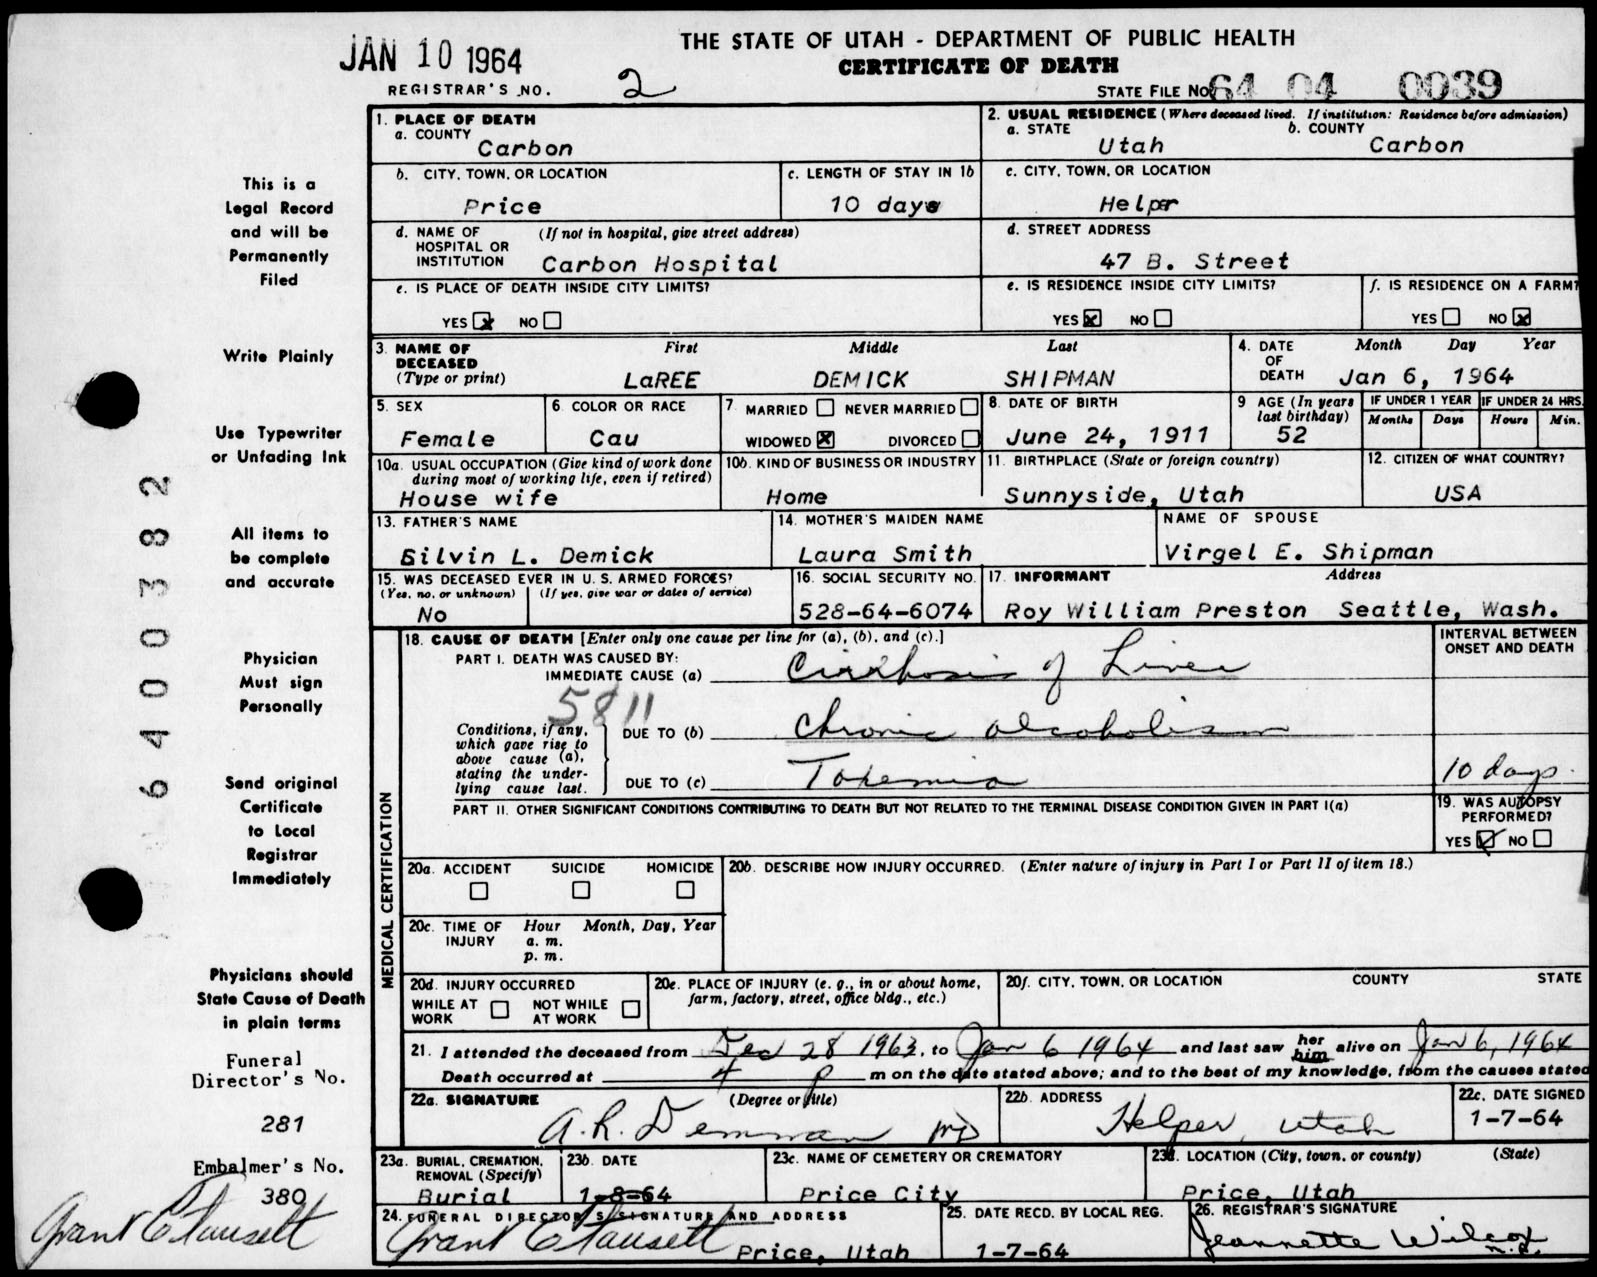 JAN 10 1964
THE STATE OF UTAH - DEPARTMENT OF PUBLIC HEALTH
CERTIFICATE OF DEATH
REGISTRAR'S NO. 2
STATE FILE NO. 64 04 0039
1. PLACE OF DEATH
a. COUNTY
Carbon
2. USUAL RESIDENCE (Where deceased lived. If institution: Residence before admission)
a. STATE b. COUNTY
Utah Carbon
b. CITY, TOWN, OR LOCATION
Price
c. LENGTH OF STAY IN 1b
10 days
c. CITY, TOWN, OR LOCATION
Helper
d. NAME OF (If not in hospital, give street address)
HOSPITAL OR
INSTITUTION Carbon Hospital
d. STREET ADDRESS
47 B. Street
e. IS PLACE OF DEATH INSIDE CITY LIMITS?
YES x NO
e. IS RESIDENCE INSIDE CITY LIMITS?
YES x NO
f. IS RESIDENCE ON A FARM?
YES NO x
3. NAME OF First Middle Last
DECEASED
(Type or print) LaREE DEMICK SHIPMAN
4. DATE Month Day Year
OF
DEATH Jan 6, 1964
5. SEX
Female
6. COLOR OR RACE
Cau
7 MARRIED NEVER MARRIED
WIDOWED x DIVORCED
8. DATE OF BIRTH
June 24, 1911
9 AGE (In years
last birthday)
52
IF UNDER 1 YEAR IF UNDER 24 HRS.
Months Days Hours Min.
10a. USUAL OCCUPATION (Give kind of work done
during most of working life, even if retired)
House wife
10b. KIND OF BUSINESS OR INDUSTRY
Home
11. BIRTHPLACE (State or foreign country)
Sunnyside, Utah
12. CITIZEN OF WHAT COUNTRY?
USA
13. FATHER'S NAME
Silvin L. Demick
14. MOTHER'S MAIDEN NAME
Laura Smith
NAME OF SPOUSE
Virgel E. Shipman
15. WAS DECEASED EVER IN U. S. ARMED FORCES?
(Yes, no, or unknown) (If yes, give war or dates of service)
No
16. SOCIAL SECURITY NO.
528-64-6074
17. INFORMANT Address
Roy William Preston Seattle, Wash.
18. CAUSE OF DEATH [Enter only one cause per line for (a), (b), and (c).]
PART I. DEATH WAS CAUSED BY:
IMMEDIATE CAUSE (a) Cirrhosis of Liver
5811
Conditions, if any,
which gave rise to
above cause (a),
stating the under-
lying cause last.
DUE TO (b) Chronic alcoholism
DUE TO (c) Toxemia
INTERVAL BETWEEN
ONSET AND DEATH
10 days.
PART II. OTHER SIGNIFICANT CONDITIONS CONTRIBUTING TO DEATH BUT NOT RELATED TO THE TERMINAL DISEASE CONDITION GIVEN IN PART I(a)
19. WAS AUTOPSY
PERFORMED?
YES ✓ NO
MEDICAL CERTIFICATION
20a. ACCIDENT SUICIDE HOMICIDE
20b. DESCRIBE HOW INJURY OCCURRED. (Enter nature of injury in Part I or Part II of item 18.)
20c. TIME OF Hour Month, Day, Year
INJURY a. m.
p. m.
20d. INJURY OCCURRED
WHILE AT NOT WHILE
WORK AT WORK
20e. PLACE OF INJURY (e. g., in or about home,
farm, factory, street, office bldg., etc.)
20f. CITY, TOWN, OR LOCATION COUNTY STATE
21. I attended the deceased from Dec 28 1963, to Jan 6 1964 and last saw her him alive on Jan 6, 1964
Death occurred at 4 p m on the date stated above; and to the best of my knowledge, from the causes stated
22a. SIGNATURE (Degree or title)
A. R. Demman MD
22b. ADDRESS
Helper, Utah
22c. DATE SIGNED
1-7-64
23a. BURIAL, CREMATION,
REMOVAL (Specify)
Burial
23b. DATE
1-8-64
23c. NAME OF CEMETERY OR CREMATORY
Price City
23d. LOCATION (City, town, or county) (State)
Price, Utah
24. FUNERAL DIRECTOR'S SIGNATURE AND ADDRESS
Grant C Fausett Price, Utah
25. DATE RECD. BY LOCAL REG.
1-7-64
26. REGISTRAR'S SIGNATURE
Jeannette Wilcox
This is a
Legal Record
and will be
Permanently
Filed
Write Plainly
Use Typewriter
or Unfading Ink
All items to
be complete
and accurate
Physician
Must sign
Personally
Send original
Certificate
to Local
Registrar
Immediately
Physicians should
State Cause of Death
in plain terms
Funeral
Director's No.
281
Embalmer's No.
380
Grant C Fausett
6400382